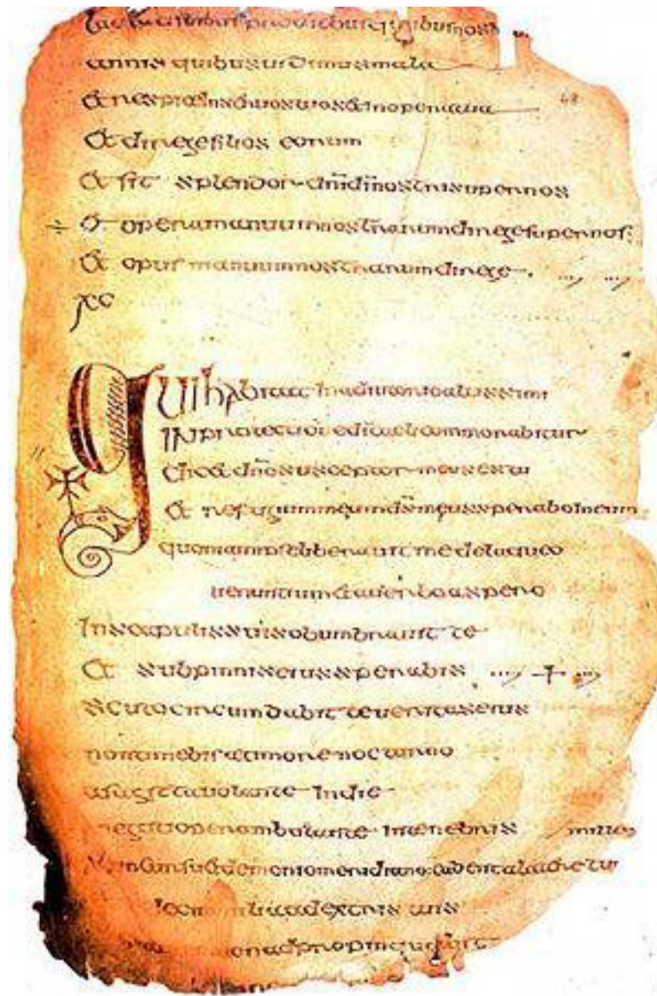 prodiebus quibusnos
annis quibusuidimusmala
48
et respice inseruostuos et inoperatua
et dirigefilios eorum
et sit splendor dni di nostri supernos
÷ et operamanuumnostrarumdirigesupernos:
et opus manuumnostrarumdirige
xc
Qui habitat inadiutorioaltissimi
inprotectione di caeli commorabitur
dicet dno susceptor meus es tu
et refugiummeum ds meus sperabo ineum
quoniam ipse liberauit me delaqueo
uenantium et auerbo aspero
inscapulissuis obumbrauit te
et subpinniseius sperabis
scutocircumdabit te ueritaseius
nontimebis atimore nocturno
asagittauolante indie
negotioperambulante intenebris mille
demoniomeridiano cadent alatere tuo
milia adextris tuis
nonadpropinquabit